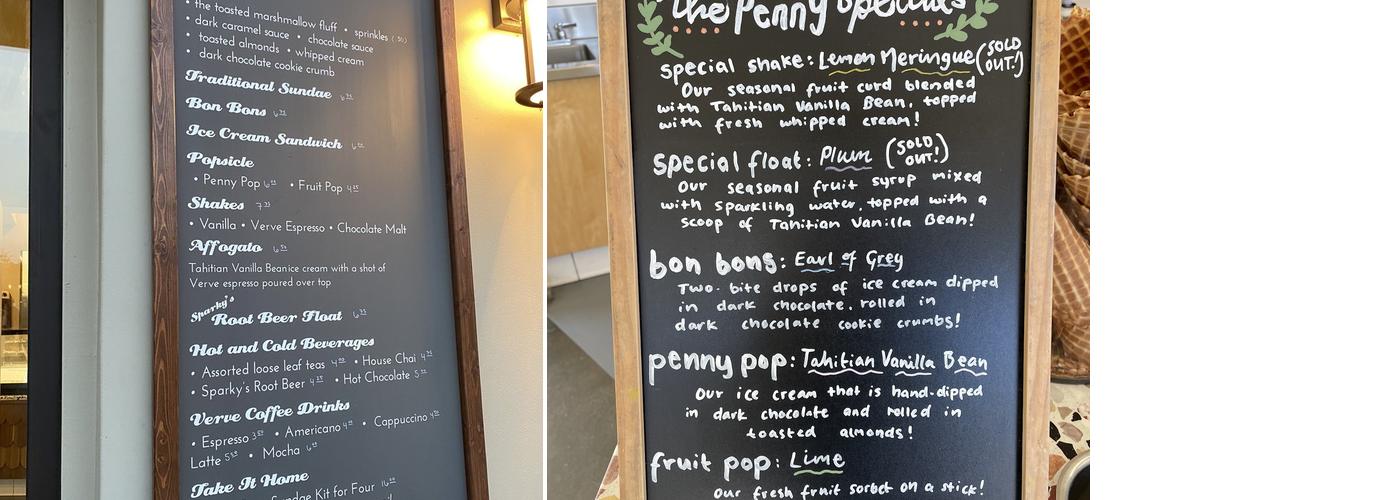 • the toasted marshmallow fluff • sprinkles (.50)
• dark caramel sauce • chocolate sauce
• toasted almonds • whipped cream
• dark chocolate cookie crumb
Traditional Sundae
Bon Bons
Ice Cream Sandwich
Popsicle
• Penny Pop • Fruit Pop
Shakes
• Vanilla • Verve Espresso • Chocolate Malt
Affogato
Tahitian Vanilla Beanice cream with a shot of
Verve espresso poured over top
Sparky's
Root Beer Float
Hot and Cold Beverages
• Assorted loose leaf teas • House Chai
• Sparky's Root Beer • Hot Chocolate
Verve Coffee Drinks
• Espresso • Americano • Cappuccino
Latte • Mocha
Take It Home
Sundae Kit for Four
the Penny Specials
special shake: Lemon Meringue (SOLD
OUT!)
Our seasonal fruit curd blended
with Tahitian Vanilla Bean, topped
with fresh whipped cream!
special float: Plum (SOLD
OUT!)
Our seasonal fruit syrup mixed
with sparkling water, topped with a
scoop of Tahitian Vanilla Bean!
bon bons: Earl of Grey
Two-bite drops of ice cream dipped
in dark chocolate, rolled in
dark chocolate cookie crumbs!
penny pop: Tahitian Vanilla Bean
Our ice cream that is hand-dipped
in dark chocolate and rolled in
toasted almonds!
fruit pop: Lime
Our fresh fruit sorbet on a stick!